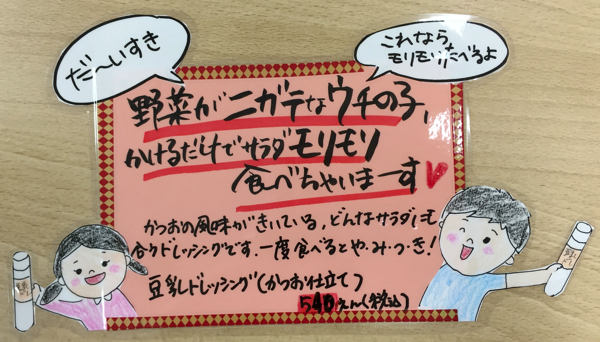 だ〜いすき
これなら
モリモリたべるよ
野菜がニガテなウチの子、
かけるだけでサラダモリモリ
食べちゃいまーす♥
かつおの風味がきいている、どんなサラダにも
合うドレッシングです。一度食べるとや・み・つ・き!
豆乳ドレッシング(かつお仕立て)
540えん(税込)